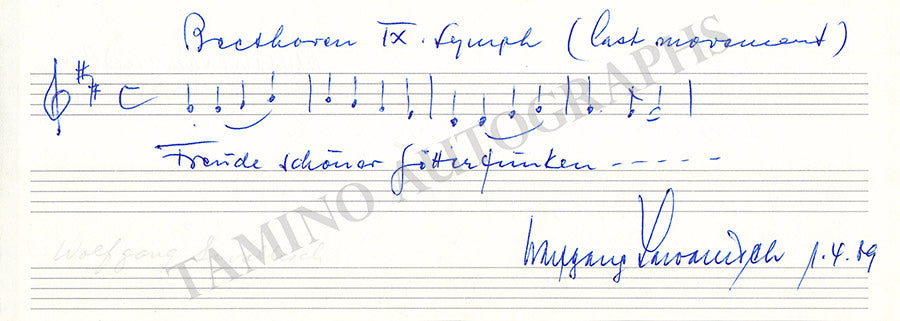 Beethoven IX. Symph (last movement)
Freude schöner Götterfunken -----
TAMINO AUTOGRAPHS
Wolfgang Sawallisch 1.4.89
Wolfgang Sawallisch